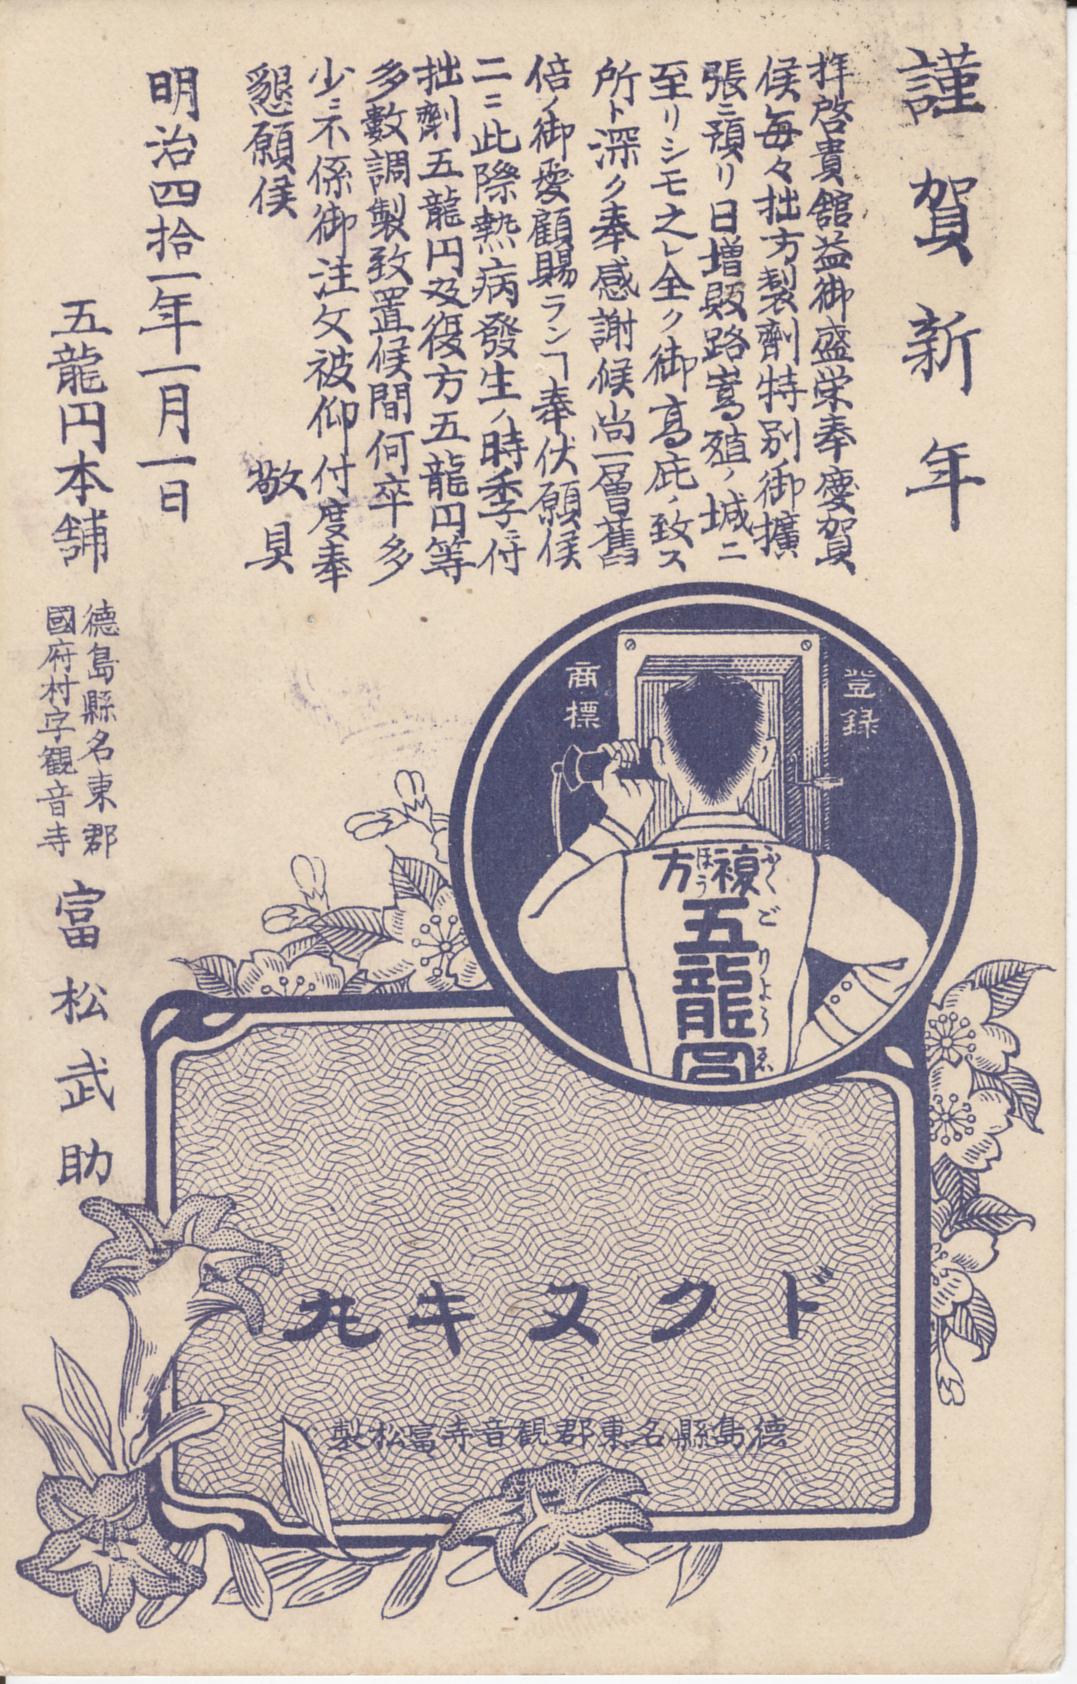 謹賀新年
拝啓貴舘益御盛栄奉慶賀
候毎々拙方製劑特別御擴
張ニ預リ日増販路嵩殖ノ域ニ
至リシモ之レ全ク御高庇ノ致ス
所ト深ク奉感謝候尚一層舊
倍ノ御愛顧賜ランヿ奉伏願候
二ニ此際熱病發生ノ時季ニ付
拙劑五龍円及復方五龍円等
多數調製致置候間何卒多
少ニ不係御注文被仰付度奉
懇願候 敬具
明治四拾一年一月一日
五龍円本舗
徳島縣名東郡
國府村字観音寺
富松武助
登録
商標
複方
ふくほう
五龍圓
ごりようゑ
ドクヌキ丸
徳島縣名東郡観音寺富松製